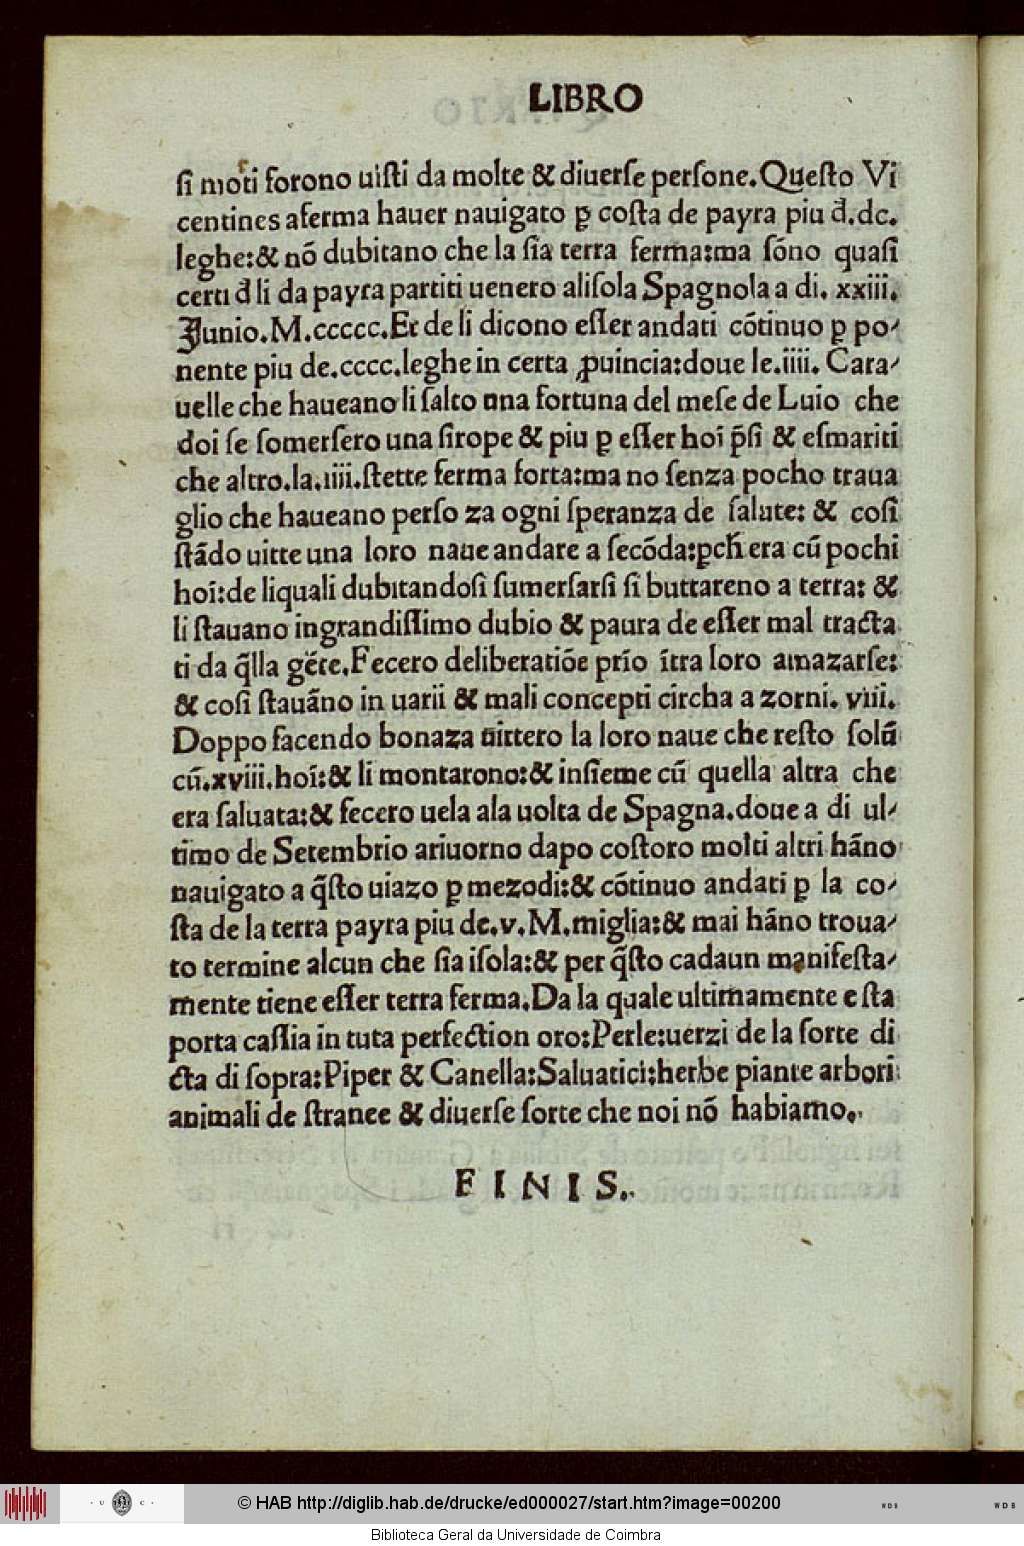 LIBRO
ſi morti forono uiſti da molte & diuerſe perſone. Queſto Vi
centines aferma hauer nauigato ꝑ coſta de payra piu đ.dc.
leghe: & nõ dubitano che la ſia terra ferma: ma ſõno quaſi
certi đ li da payra partiti uenero aliſola Spagnola a di. xxiii.
Junio. M.ccccc. Et de li dicono eſſer andati cõtinuo ꝑ po-
nente piu de.cccc.leghe in certa ꝓuincia: doue le.iiii. Cara-
uelle che haueano li ſalto una fortuna del meſe de Luio che
doi ſe ſomerſero una ſirope & piu ꝑ eſſer hoĩ p̃ſi & eſmariti
che altro.la.iiii.ſtette ferma forta: ma no ſenza pocho traua
glio che haueano perſo za ogni ſperanza de ſalute: & coſi
ſtãdo uitte una loro naue andare a ſecõda: ꝑcħ era cũ pochi
hoĩ: de liquali dubitandoſi ſumerſarſi ſi buttareno a terra: &
li ſtauano ingrandiſſimo dubio & paura de eſſer mal tracta
ti da q̃lla gẽte. Fecero deliberatiõe prĩo ĩtra loro amazarſe:
& coſi ſtauãno in uarii & mali concepti circha a zorni. viii.
Doppo facendo bonaza uittero la loro naue che reſto ſolũ
cũ.xviii.hoĩ: & li montarono: & inſieme cũ quella altra che
era ſaluata: & fecero uela ala uolta de Spagna. doue a di ul-
timo de Setembrio ariuorno dapo coſtoro molti altri hãno
nauigato a q̃ſto uiazo ꝑ mezodi: & cõtinuo andati ꝑ la co-
ſta de la terra payra piu de.v.M.miglia: & mai hãno troua-
to termine alcun che ſia iſola: & per q̃ſto cadaun manifeſta-
mente tiene eſſer terra ferma. Da la quale ultimamente e ſta
porta caſſia in tuta perfection oro: Perle: uerzi de la ſorte di
cta di ſopra: Piper & Canella: Saluatici: herbe piante arbori
animali de ſtranee & diuerſe ſorte che noi nõ habiamo.
FINIS.
· U C ·
© HAB http://diglib.hab.de/drucke/ed000027/start.htm?image=00200
WDB
WDB
Biblioteca Geral da Universidade de Coimbra